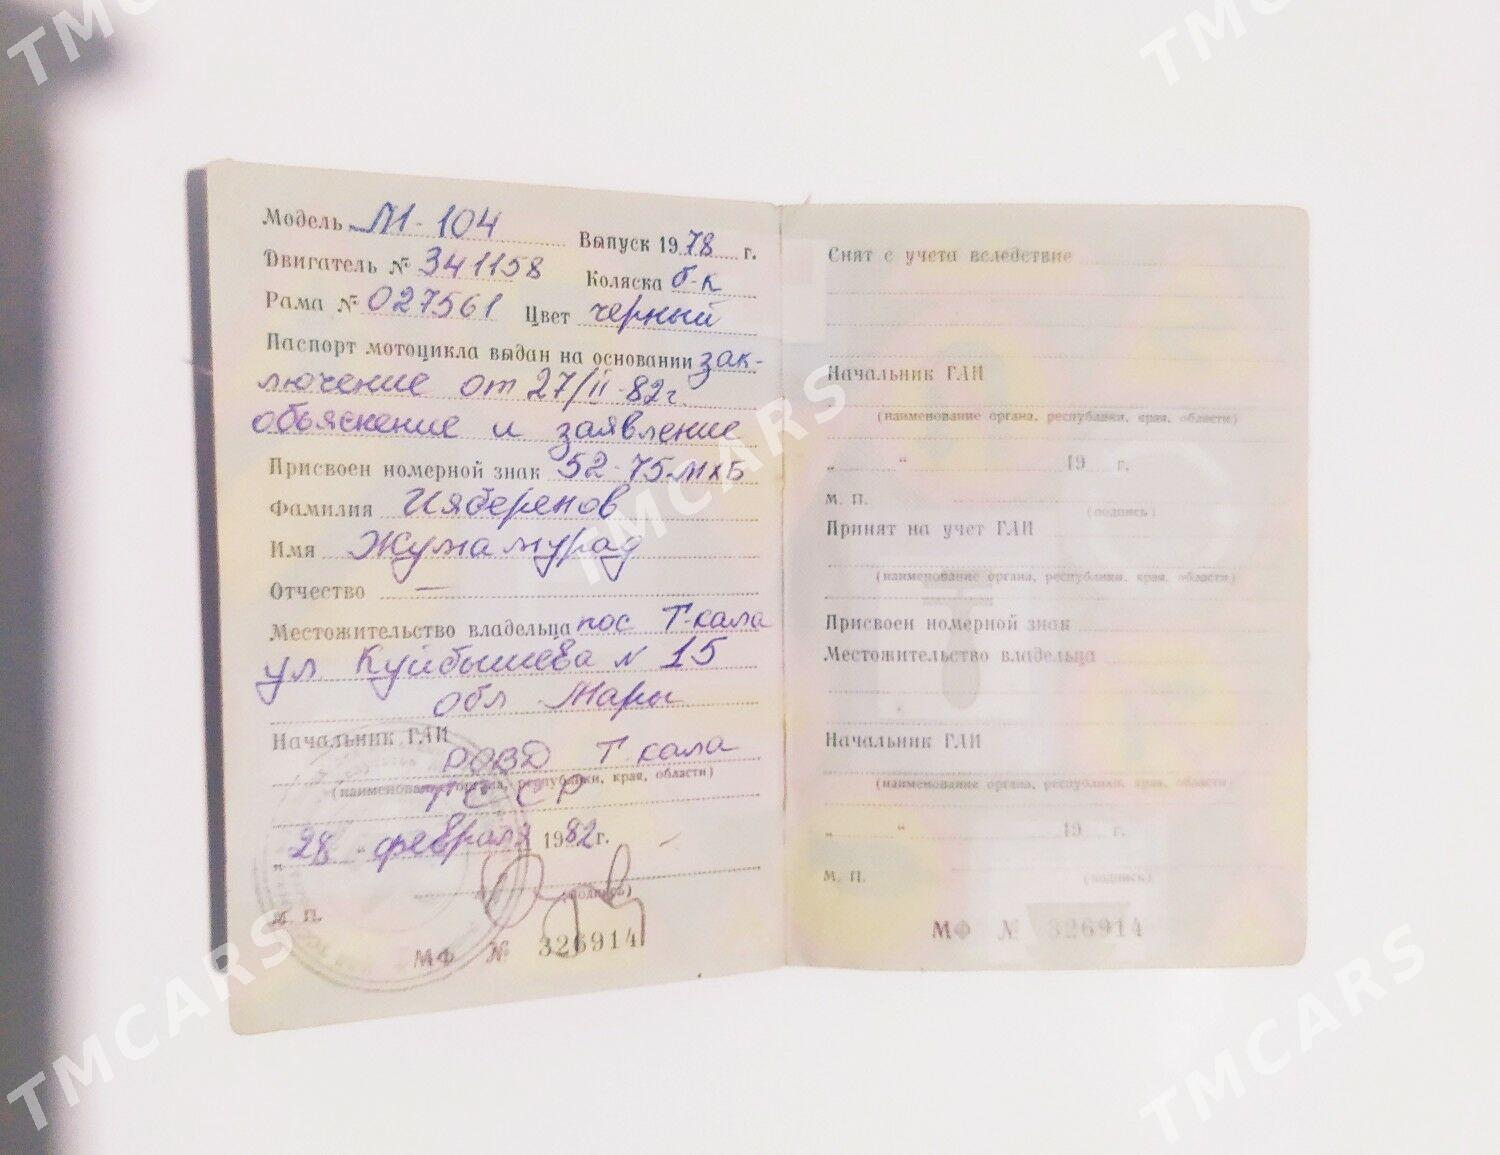 Модель М-104 Выпуск 1978 г.
Двигатель № 341158 Коляска б-к
Рама № 027561 Цвет черный
Паспорт мотоцикла выдан на основании зак-
лючение от 27/II-82г.
объяснение и заявление
Присвоен номерной знак 52-75 МХБ
Фамилия Ияберенов
Имя Жумамурад
Отчество —
Местожительство владельца пос Т-кала
ул. Куйбышева № 15
обл Мары
Начальник ГАИ
РОВД Т кала
(наименование органа, республики, края, области)
ТССР
„28" февраля 1982г.
(подпись)
М. П.
МФ № 326914
Снят с учета вследствие
Начальник ГАИ
(наименование органа, республики, края, области)
„ " 19 г.
М. П.
(подпись)
Принят на учет ГАИ
(наименование органа, республики, края, области)
Присвоен номерной знак
Местожительство владельца
Начальник ГАИ
(наименование органа, республики, края, области)
„ " 19 г.
М. П. (подпись)
МФ № 326914
TMCARS
TMCARS
TMCARS
TMCARS
TMCARS